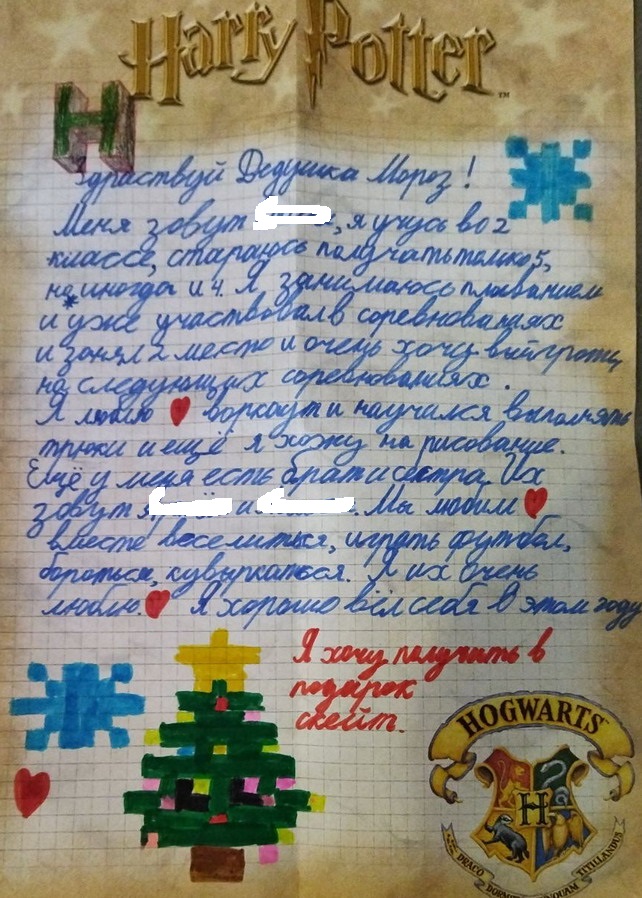 Harry Potter™
Н
Здраствуй Дедушка Мороз!
Меня зовут , я учусь во 2
классе, стараюсь получать только 5,
но иногда и 4. Я занимаюсь плаванием
и уже участвовал в соревнованиях
и занял 2 место и очень хочу выйграть,
на следующих соревнованиях.
Я люблю ❤ воркаут и научился выполнять
трюки и ещё я хожу на рисование.
Ещё у меня есть брат и сестра. Их
зовут и . Мы любим ❤
вместе веселиться, играть футбол,
бороться, кувыркаться. Я их очень
люблю. ❤ Я хорошо вёл себя в этом году
Я хочу получить в
подарок
скейт.
HOGWARTS
H
DRACO DORMIENS NUNQUAM TITILLANDUS